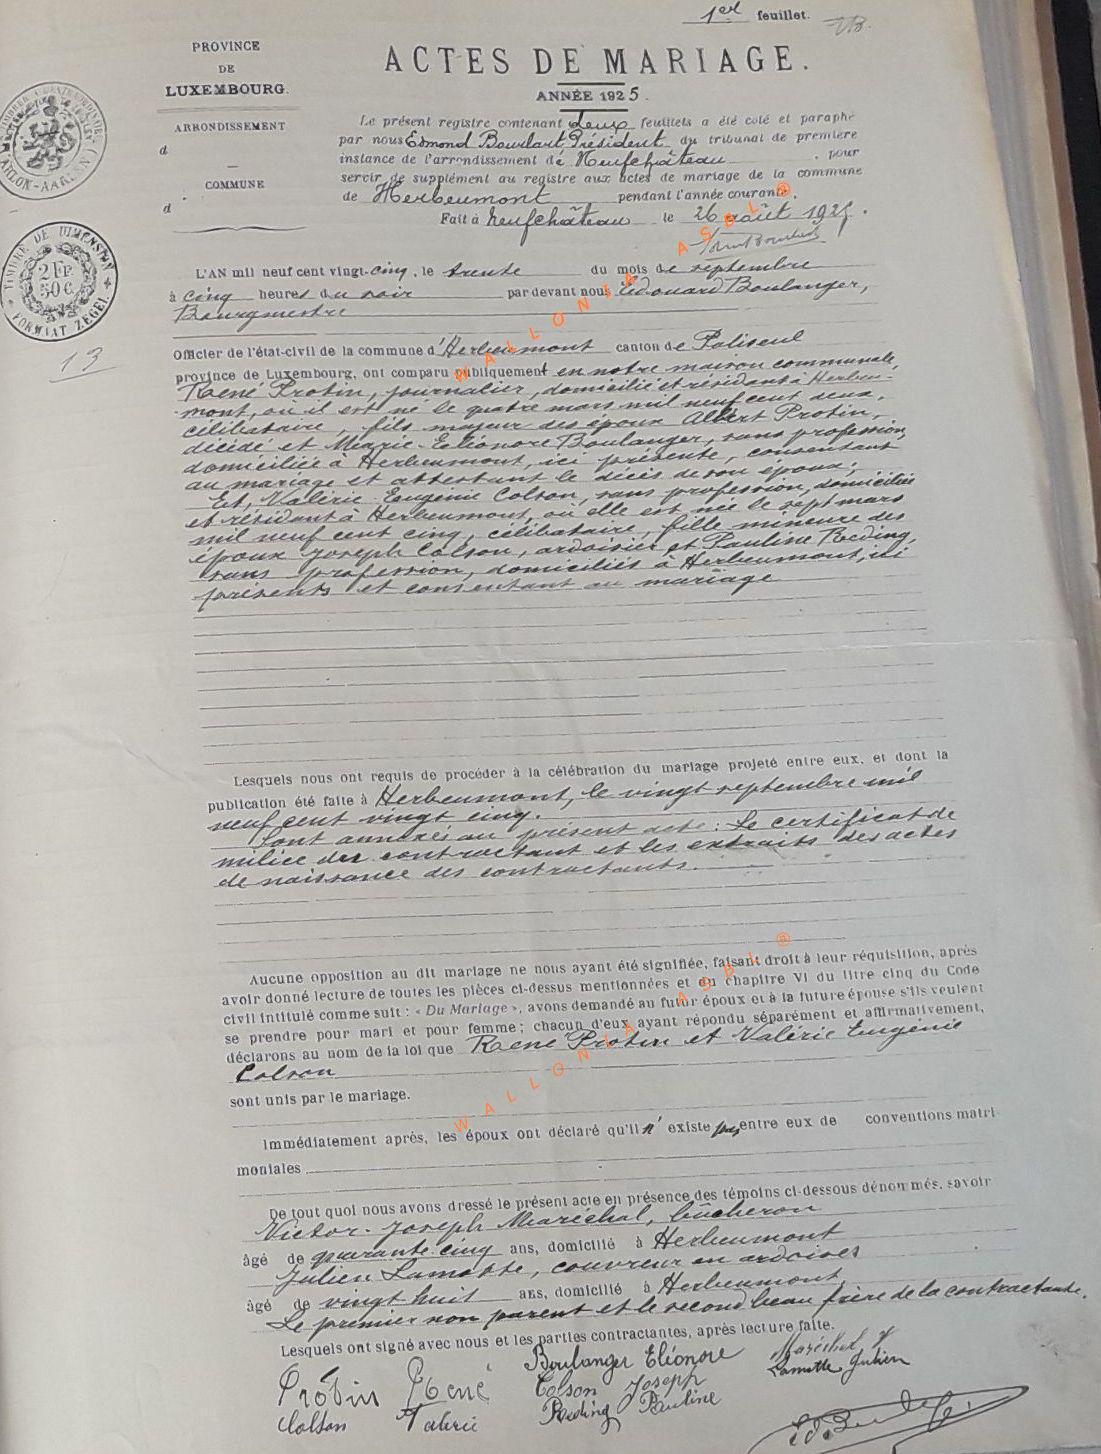 1er feuillet.
PROVINCE
DE
LUXEMBOURG.
ARRONDISSEMENT
d
COMMUNE
d
ACTES DE MARIAGE.
ANNÉE 1925.
Le présent registre contenant deux feuillets a été coté et paraphé
par nous Edmond Bourlart, Président du tribunal de première
instance de l'arrondissement de Neufchâteau pour
servir de supplément au registre aux actes de mariage de la commune
de Herbeumont pendant l'année courante.
Fait à Neufchâteau le 26 août 1925.
TIMBRE DE DIMENSION
2 FR.
50 C.
FORMAAT ZEGEL
13
L'AN mil neuf cent vingt-cinq, le trente du mois de septembre
à cinq heures du soir par devant nous Edouard Boulanger,
Bourgmestre
Officier de l'état-civil de la commune d'Herbeumont canton de Paliseul
province de Luxembourg, ont comparu publiquement en notre maison communale,
René Protin, journalier, domicilié et résidant à Herbeu-
mont, où il est né le quatre mars mil neuf cent deux,
célibataire, fils majeur des époux Albert Protin,
décédé et Marie-Eléonore Boulanger, sans profession,
domiciliée à Herbeumont, ici présente, consentant
au mariage et attestant le décès de son époux;
Et, Valérie Eugénie Colson, sans profession, domiciliée
et résidant à Herbeumont, où elle est née le sept mars
mil neuf cent cinq, célibataire, fille mineure des
époux Joseph Colson, ardoisier et Pauline Reding,
sans profession, domiciliés à Herbeumont, ici
présents et consentant au mariage
Lesquels nous ont requis de procéder à la célébration du mariage projeté entre eux, et dont la
publication été faite à Herbeumont, le vingt septembre mil
neuf cent vingt cinq.
Sont annexés au présent acte: Le certificat de
milice du contractant et les extraits des actes
de naissance des contractants.
Aucune opposition au dit mariage ne nous ayant été signifiée, faisant droit à leur réquisition, après
avoir donné lecture de toutes les pièces ci-dessus mentionnées et du chapitre VI du titre cinq du Code
civil intitulé comme suit: « Du Mariage », avons demandé au futur époux et à la future épouse s'ils veulent
se prendre pour mari et pour femme; chacun d'eux ayant répondu séparément et affirmativement,
déclarons au nom de la loi que René Protin et Valérie Eugénie
Colson
sont unis par le mariage.
Immédiatement après, les époux ont déclaré qu'il n'existe pas entre eux de conventions matri-
moniales
De tout quoi nous avons dressé le présent acte en présence des témoins ci-dessous dénommés, savoir
Victor-Joseph Maréchal, bûcheron
âgé de quarante cinq ans, domicilié à Herbeumont
Julien Lamotte, couvreur en ardoises
âgé de vingt huit ans, domicilié à Herbeumont,
Le premier non parent et le second beau frère de la contractante.
Lesquels ont signé avec nous et les parties contractantes, après lecture faite.
Protin René Boulanger Eléonore Maréchal J
Colson Valérie Colson Joseph Lamotte Julien
Reding Pauline
WALLONIA ASBL @
WALLONIA ASBL @